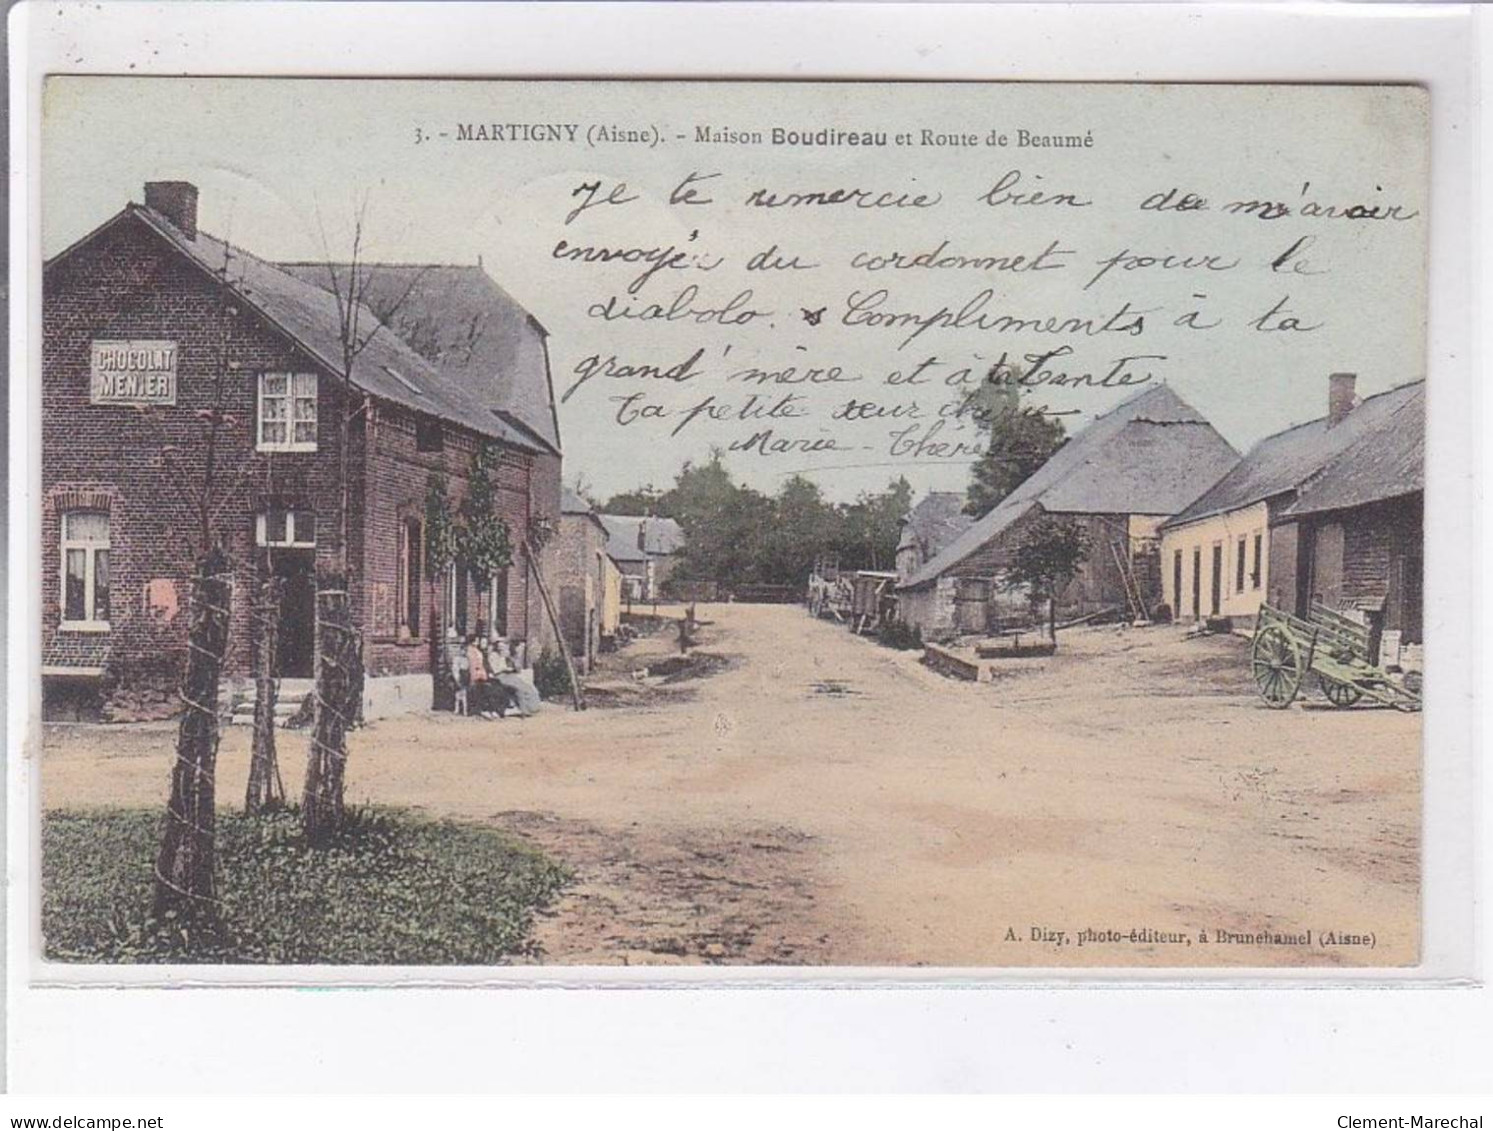 3. - MARTIGNY (Aisne). - Maison Boudireau et Route de Beaumé
Je te remercie bien de m'avoir
envoyér du cordonnet pour le
diabolo. Compliments à ta
grand' mère et à ta Tante
Ta petite sœur chérie
Marie - Thérèse
CHOCOLAT
MENIER
A. Dizy, photo-éditeur, à Brunehamel (Aisne)
www.delcampe.net
Clement-Marechal